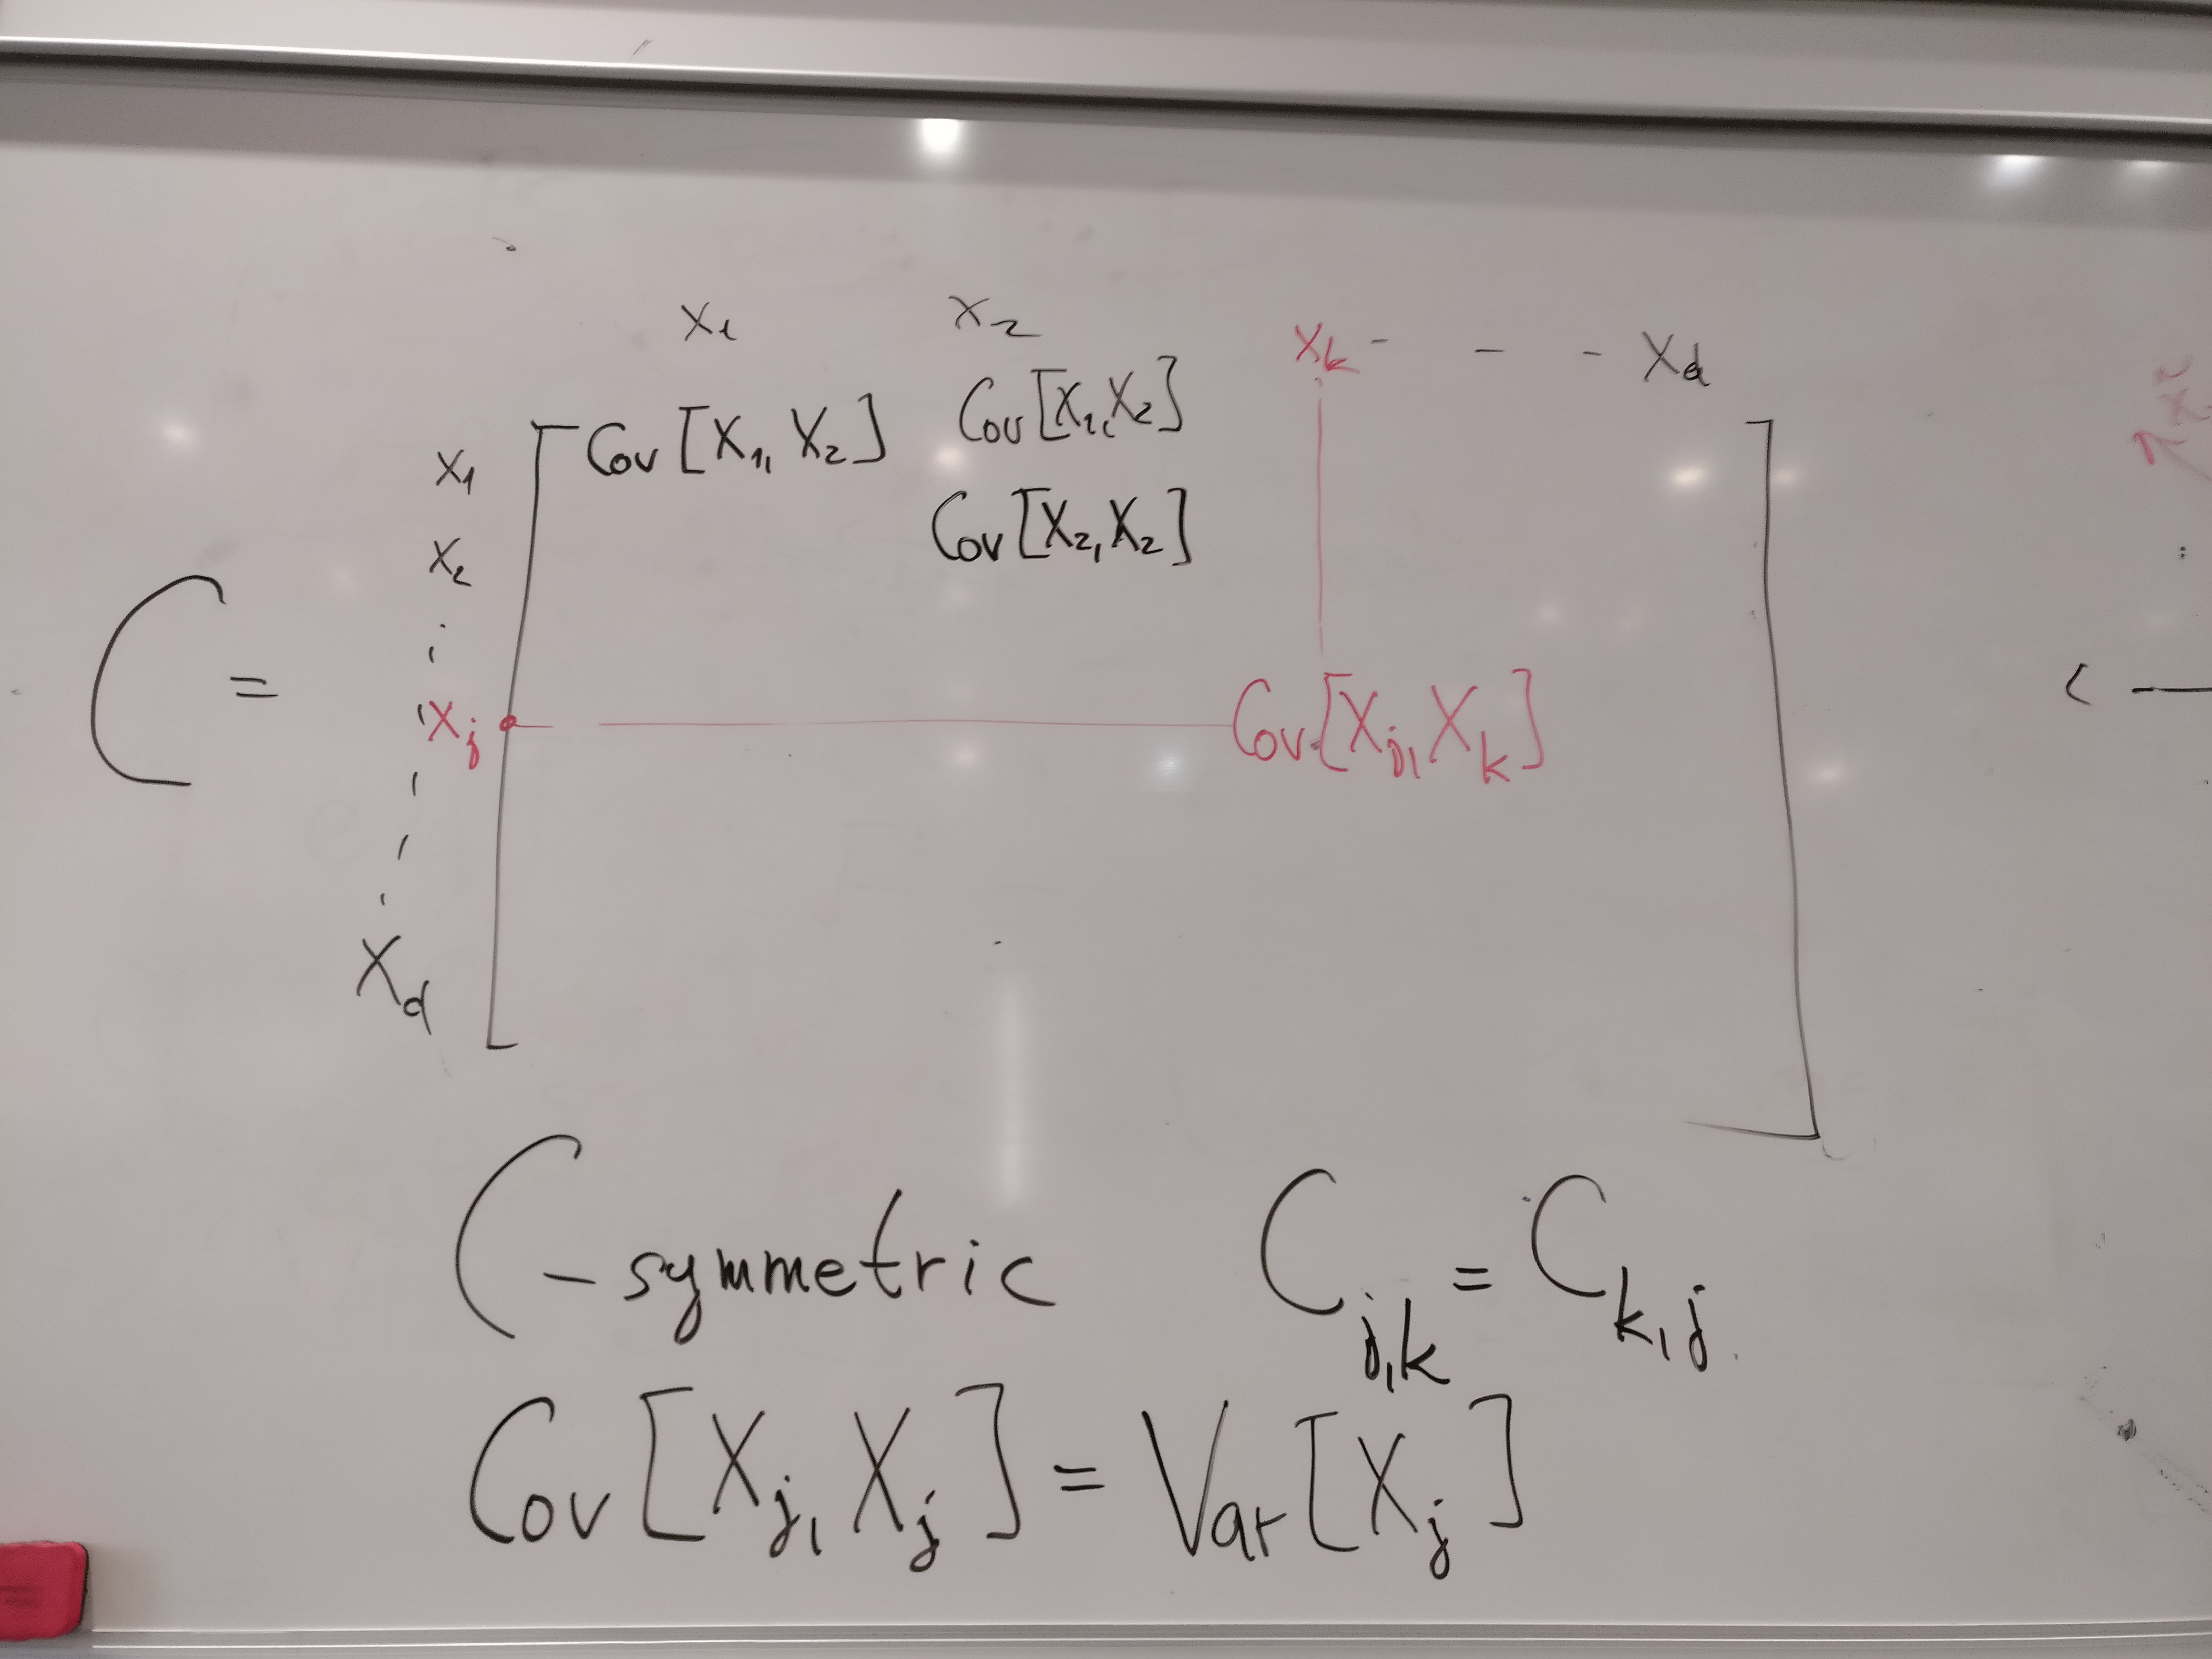 X₁ X₂ Xₖ - - - X_d
X₁ Cov[X₁, X₂] Cov[X₁, X₂]
X₂ Cov[X₂, X₂]
C =
Xⱼ Cov[Xⱼ, Xₖ]
X_d
C - symmetric C_{j,k} = C_{k,j}
Cov[Xⱼ, Xⱼ] = Var[Xⱼ]